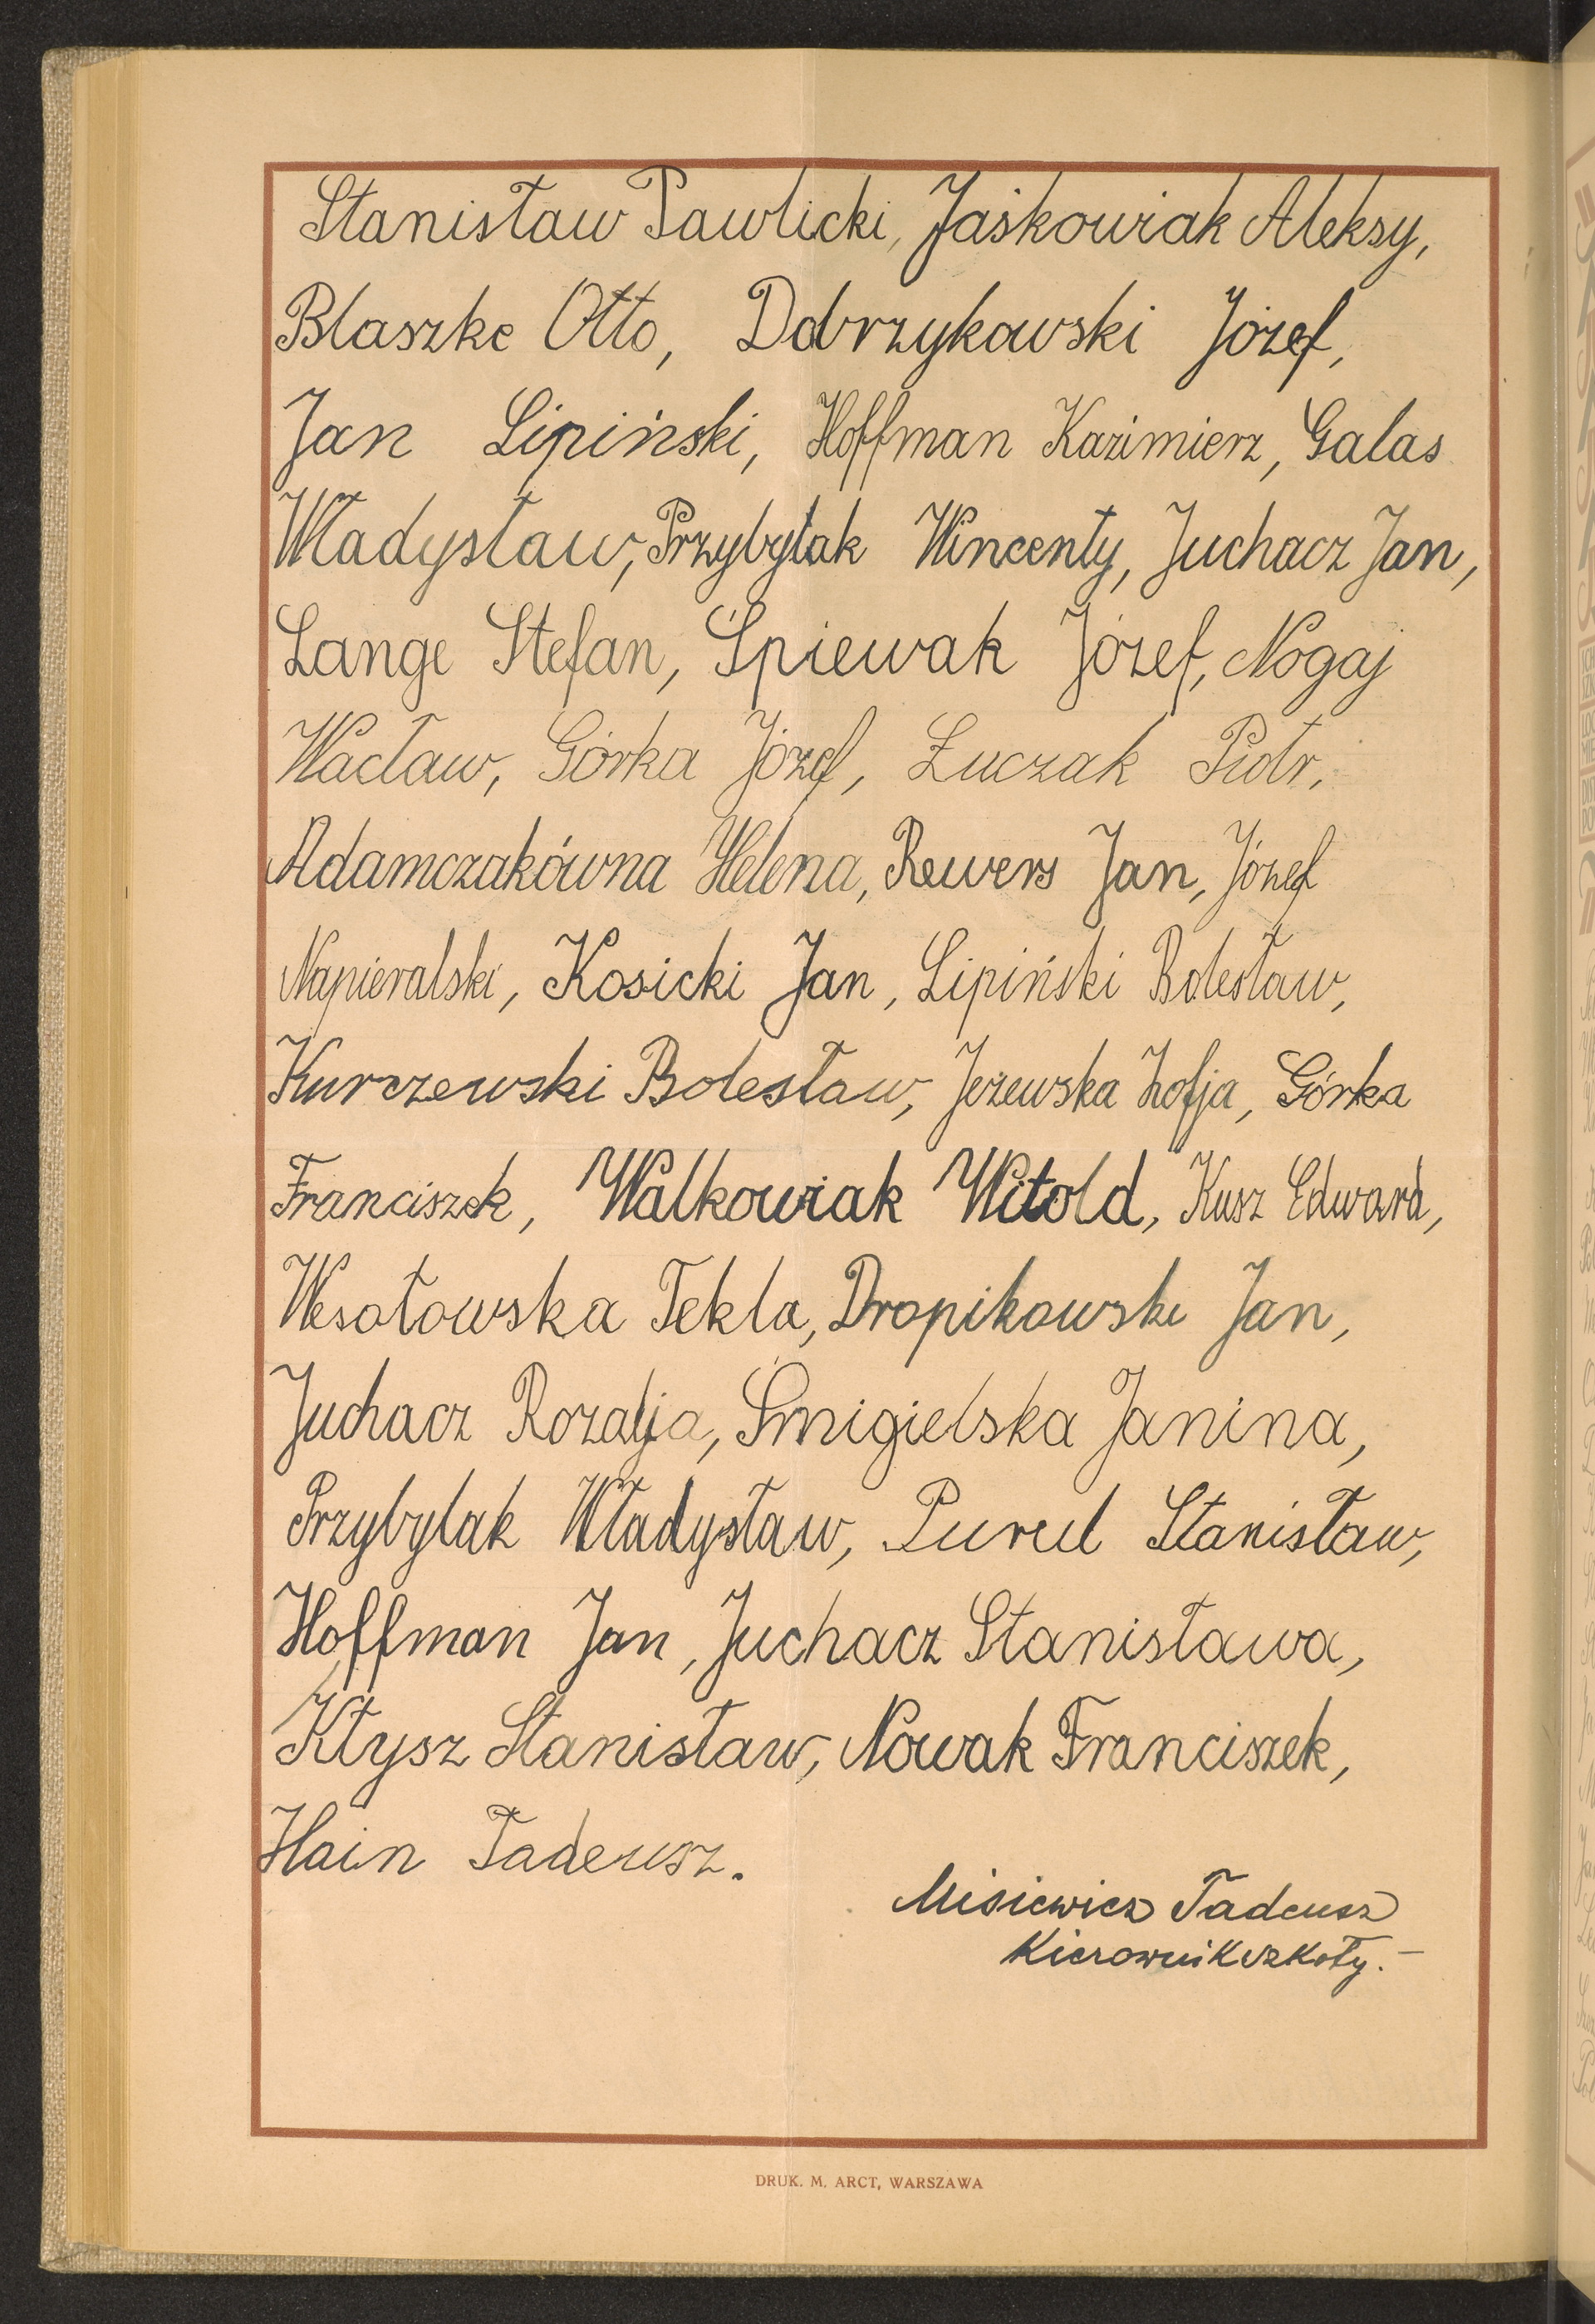 Stanisław Pawlicki, Jaśkowiak Aleksy,
Blaszke Otto, Dobrzykowski Józef,
Jan Lipiński, Hoffman Kazimierz, Galas
Władysław, Przybylak Wincenty, Juchacz Jan,
Lange Stefan, Śpiewak Józef, Nogaj
Wacław, Górka Józef, Łuczak Piotr,
Adamczakówna Helena, Rewers Jan, Józef
Napieralski, Kosicki Jan, Lipiński Bolesław,
Kurczewski Bolesław, Jeżewska Zofja, Górka
Franciszek, Walkowiak Witold, Kusz Edward,
Wesołowska Tekla, Dropikowski Jan,
Juchacz Rozalja, Śmigielska Janina,
Przybylak Władysław, Purul Stanisław,
Hoffman Jan, Juchacz Stanisława,
Kłysz Stanisław, Nowak Franciszek,
Hain Tadeusz.
Misiewicz Tadeusz
Kierownik szkoły.-
DRUK. M. ARCT, WARSZAWA